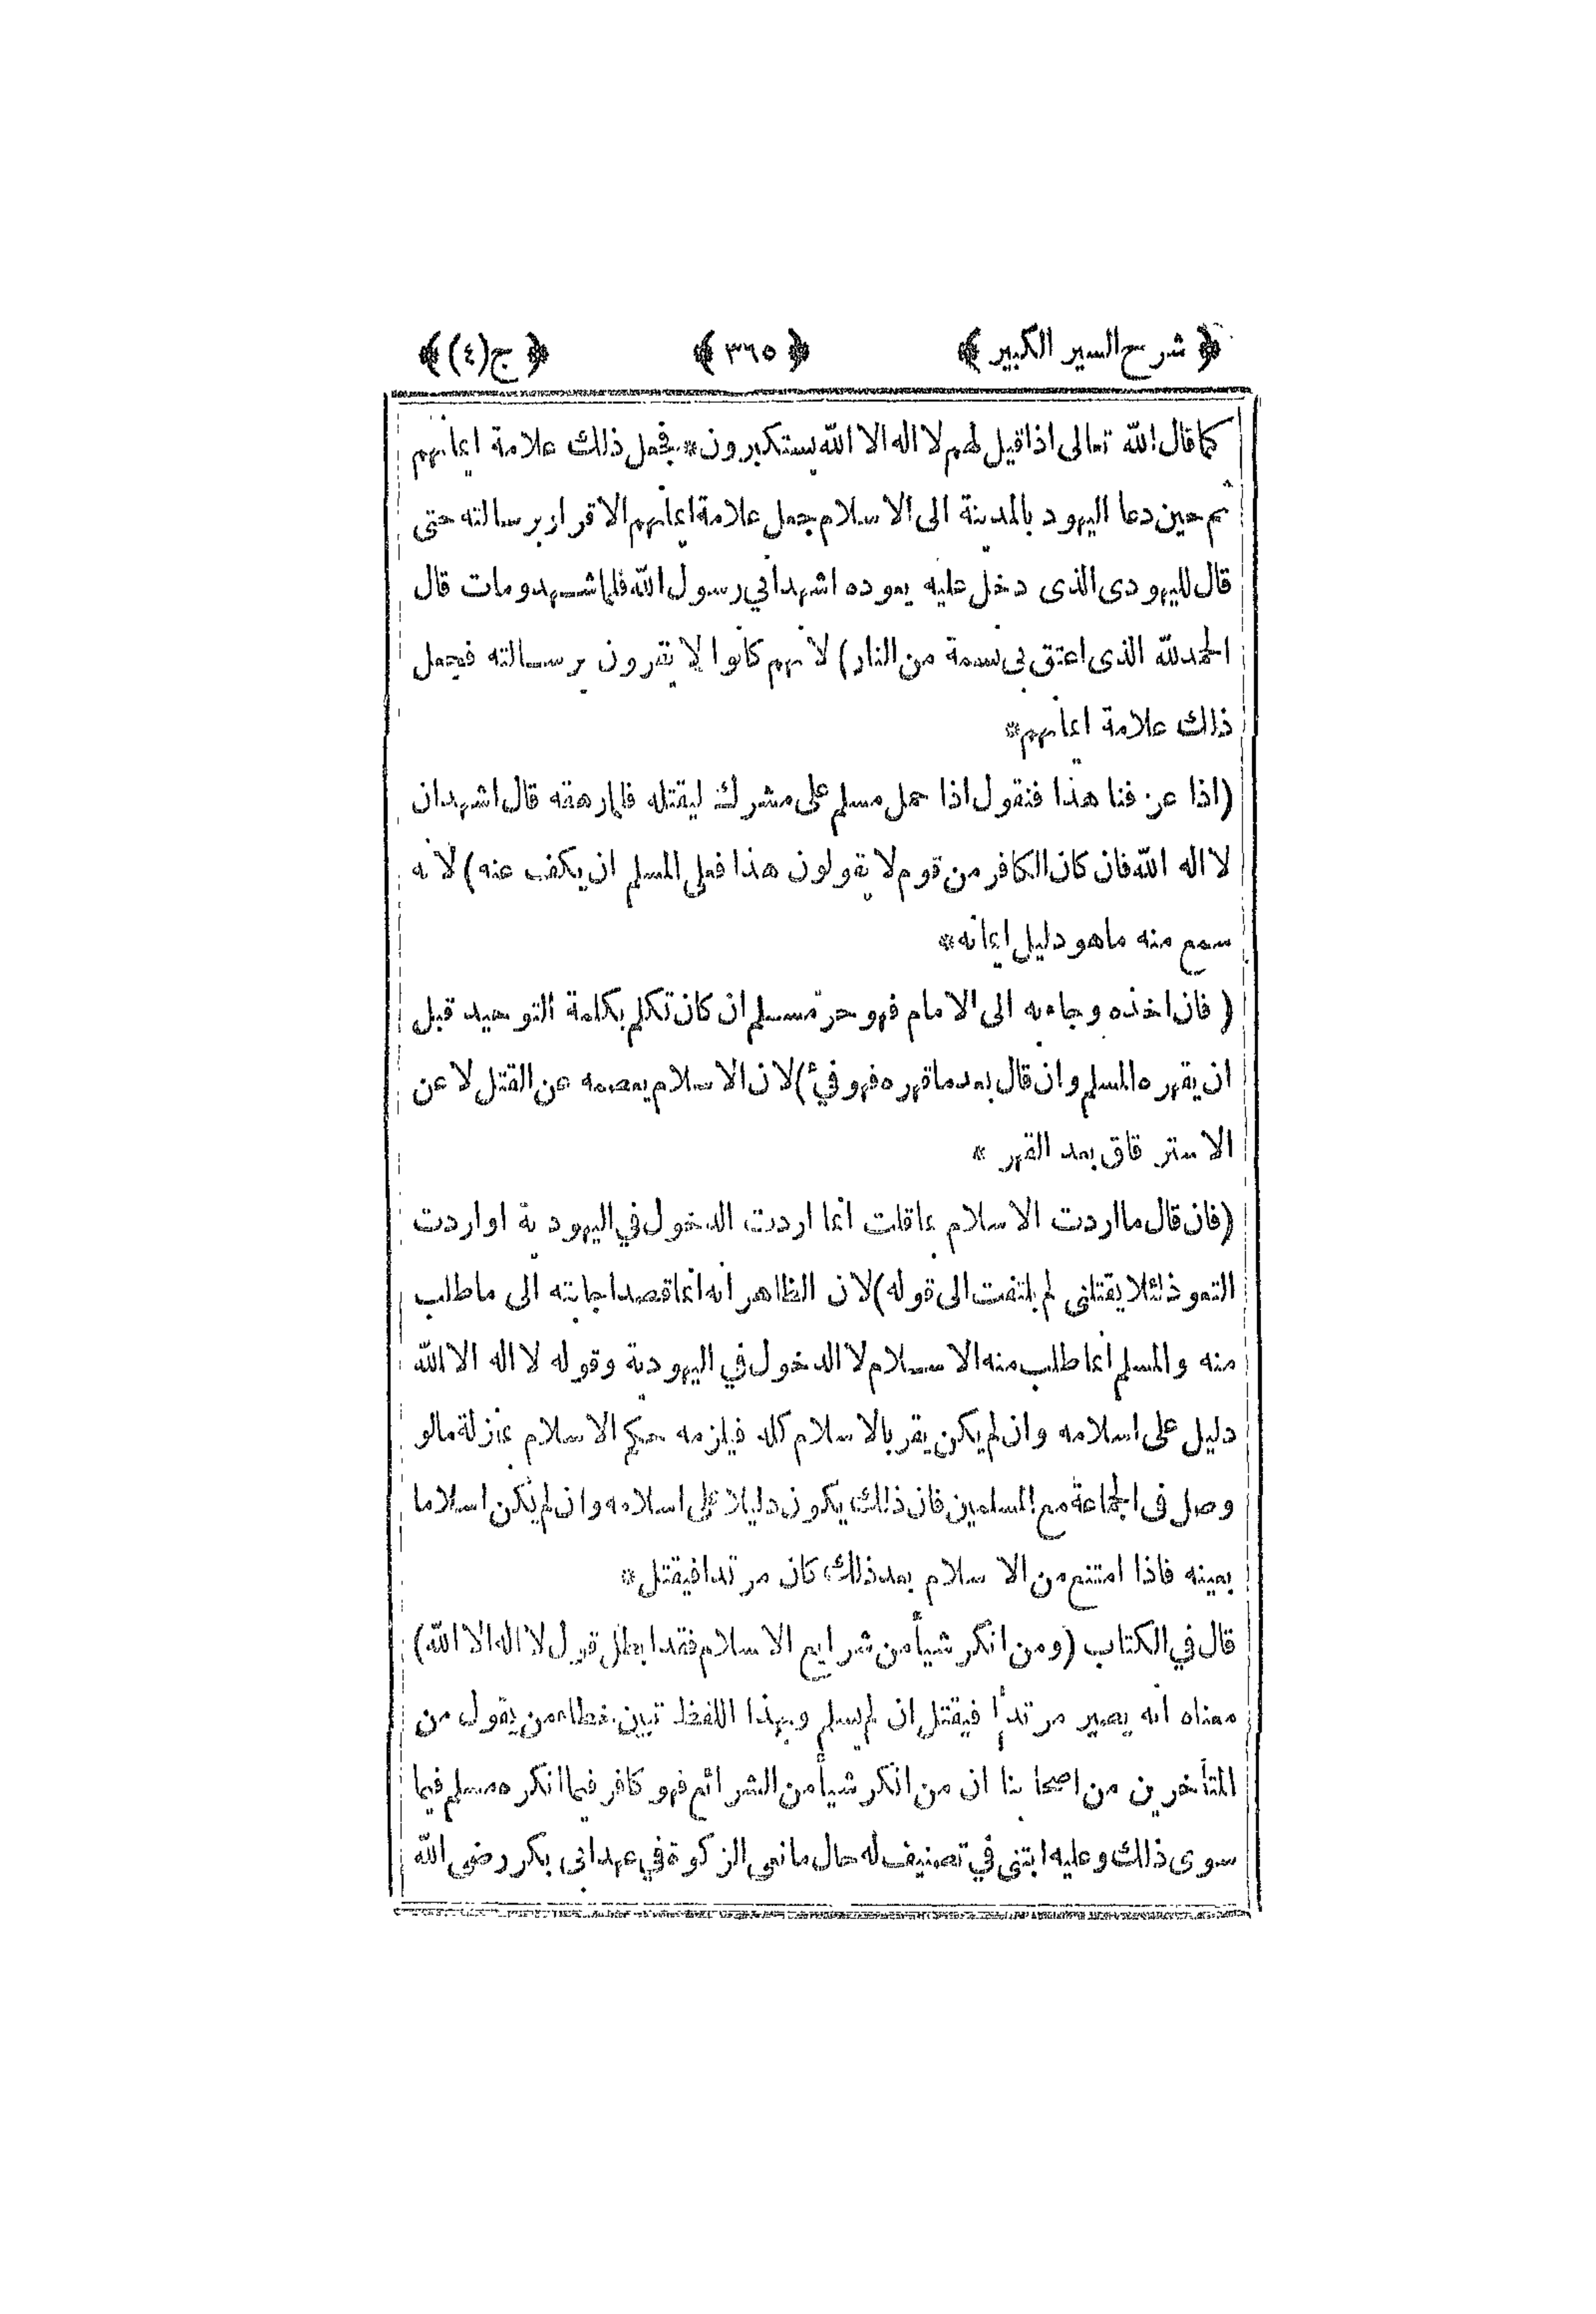 ﴿ شرح السير الكبير ﴾ ﴿ ٣٦٥ ﴾ ﴿ ج (٤) ﴾
كما قال الله تعالى اذا قيل لهم لا اله الا الله يستكبرون * فجعل ذلك علامة ايمانهم
ثم حين دعا اليهود بالمدينة الى الاسلام جعل علامة ايمانهم الاقرار برسالته حتى
قال لليهودى الذى دخل عليه يعوده اشهد انى رسول الله فلما شهد ومات قال
الحمد لله الذى اعتق بى نسمة من النار) لانهم كانوا لا يقرون برسالته فجعل
ذلك علامة ايمانهم *
(اذا عرفنا هذا فنقول اذا حمل مسلم على مشرك ليقتله فلما رهقه قال اشهد ان
لا اله الله فان كان الكافر من قوم لا يقولون هذا فعلى المسلم ان يكف عنه) لانه
سمع منه ما هو دليل ايمانه *
( فان اخذه وجاء به الى الامام فهو حر مسلم ان كان تكلم بكلمة التوحيد قبل
ان يقهره المسلم وان قال بعد ما قهره فهو فيء) لان الاسلام يعصمه عن القتل لا عن
الاسترقاق بعد القهر *
(فان قال ما اردت الاسلام بما قلت انما اردت الدخول في اليهودية او اردت
التعوذ لئلا يقتلنى لم يلتفت الى قوله) لان الظاهر انه انما قصد اجابته الى ما طلب
منه والمسلم انما طلب منه الاسلام لا الدخول في اليهودية وقوله لا اله الا الله
دليل على اسلامه وان لم يكن يقر بالاسلام كله فيلزمه حكم الاسلام بمنزلة مالو
وصل فى الجماعة مع المسلمين فان ذلك يكون دليلا على اسلامه وان لم يكن اسلاما
بعينه فاذا امتنع من الاسلام بعد ذلك كان مرتدا فيقتل *
قال في الكتاب (ومن انكر شيأ من شرايع الاسلام فقد ابطل قول لا اله الا الله)
معناه انه يصير مرتداً فيقتل ان لم يسلم وبهذا اللفظ تبين خطاء من يقول من
المتأخرين من اصحابنا ان من انكر شيأ من الشرائع فهو كافر فيما انكره مسلم فيما
سوى ذلك وعليه ابتنى في تصنيف له حال مانعى الزكوة في عهد ابى بكر رضى الله